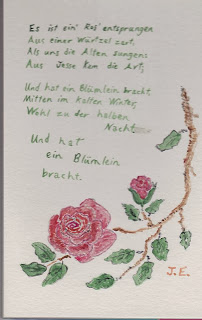 Es ist ein' Ros' entsprungen
Aus einer Würtzel zart,
Als uns die Alten sungens
Aus Jesse kam die Art,
Und hat ein Blümlein bracht
Mitten im kalten Winter,
Wohl zu der halben
Nacht
Und hat
ein Blümlein
bracht.
J.E.